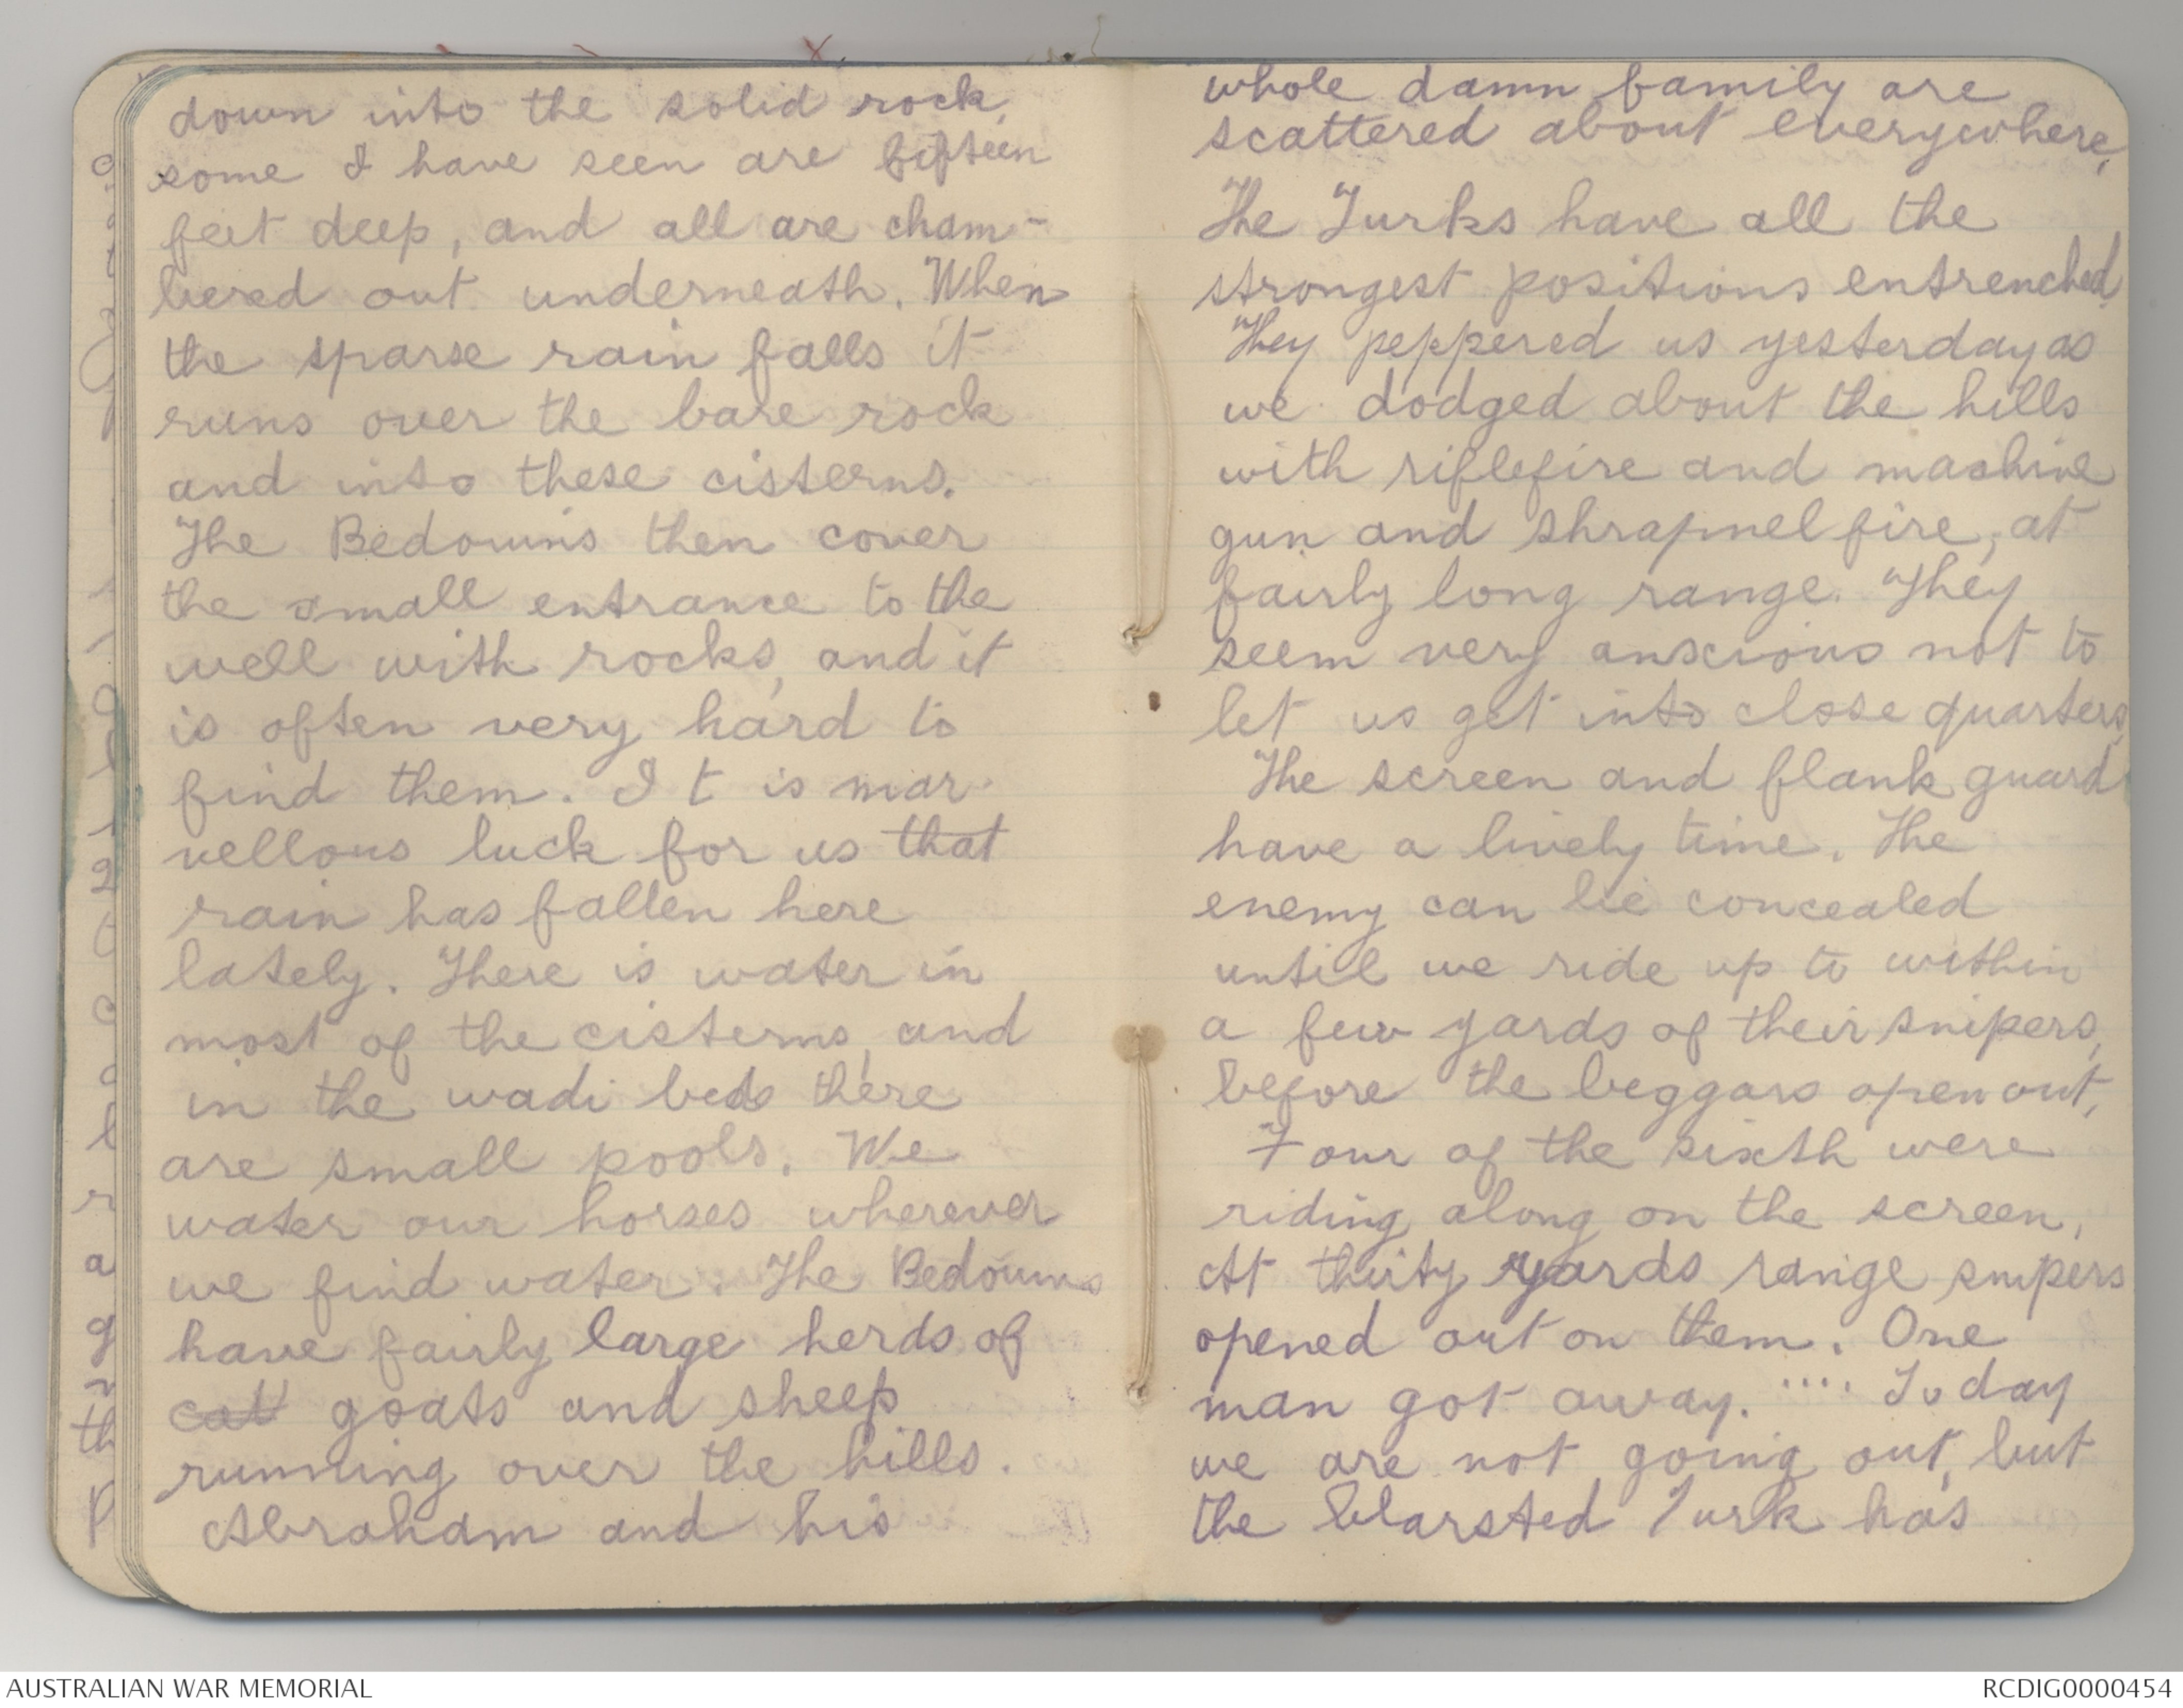 down into the solid rock,
some I have seen are fifteen
feet deep, and all are cham-
bered out underneath. When
the sparse rain falls it
runs over the bare rock
and into these cisterns.
The Bedouins then cover
the small entrance to the
well with rocks, and it
is often very hard to
find them. It is mar-
vellous luck for us that
rain has fallen here
lately. There is water in
most of the cisterns, and
in the wadi beds there
are small pools. We
water our horses wherever
we find water. The Bedouins
have fairly large herds of
cat goats and sheep
running over the hills.
Abraham and his
whole damn family are
scattered about everywhere,
The Turks have all the
strongest positions entrenched,
They peppered us yesterday as
we dodged about the hills
with riflefire and machine
gun and shrapnel fire, at
fairly long range. They
seem very anxious not to
let us get into close quarters,
The screen and flank guard
have a lively time. The
enemy can lie concealed
until we ride up to within
a few yards of their snipers,
before the beggars open out,
Four of the sixth were
riding along on the screen,
At thirty yards range snipers
opened out on them. One
man got away. .... Today
we are not going out, but
the blarsted Turk has
AUSTRALIAN WAR MEMORIAL
RCDIG0000454